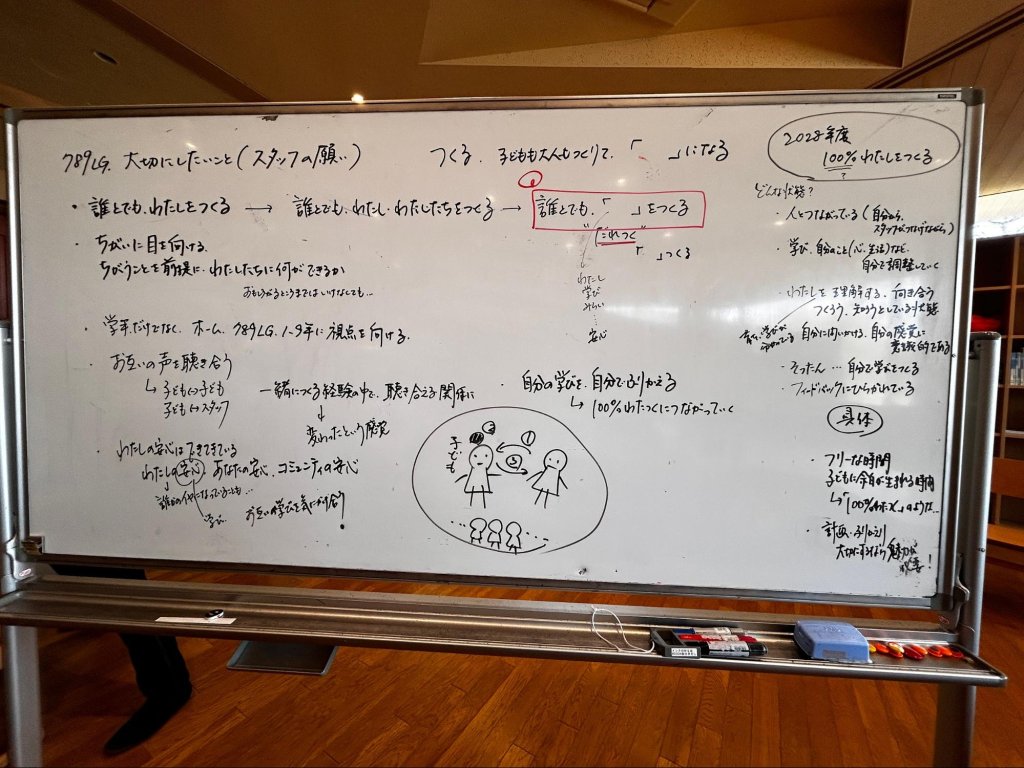 789LG. 大切にしたいこと(スタッフの願い)
つくる、子どもも大人もつくりて、「　　」になる
・誰とでも、わたしをつくる → 誰とでも、わたし・わたしたちをつくる → 誰とでも、「　　」をつくる
これつく
「　　」つくる
わたし
学び
みらい
安心
・ちがいに目を向ける。
ちがうことを前提に、わたしたちに何ができるか
おもしろがるとこうまではいけなしても…
・学年だけでなく、ホーム、789LG、1~9年に視点を向ける。
・お互いの声を聴き合う
↳子ども↔子ども
子ども↔スタッフ
一緒につくる経験の中で、聴き合える関係に
↓
変わったという感覚
・自分の学びを、自分でふりかえる
↳100%わたつくにつながっていく
・わたしの安心はできてきている
わたしの安心　あなたの安心、コミュニティの安心
学び
お互いの学びを気にかけ合う!
子ども
② ①
③
2028年度
100%わたしをつくる
?
どんな状態?
・人とつながっている(自分から、
スタッフがつなげながら)
・学び、自分のこと(心・生活)など、
自分で調整していく
・わたしを理解する、向き合う
つくろう、知ろうとしている状態
自分に問いかける、自分の感覚に
意識的である
・そったん…自分で学びをつくる
・フィードバックにひらかれている
具体
・フリーな時間
子どもに余白が生まれる時間
↳「100%わたメ」のような…
・計画・ふりかえり
大切にするなら魅力が
必要!